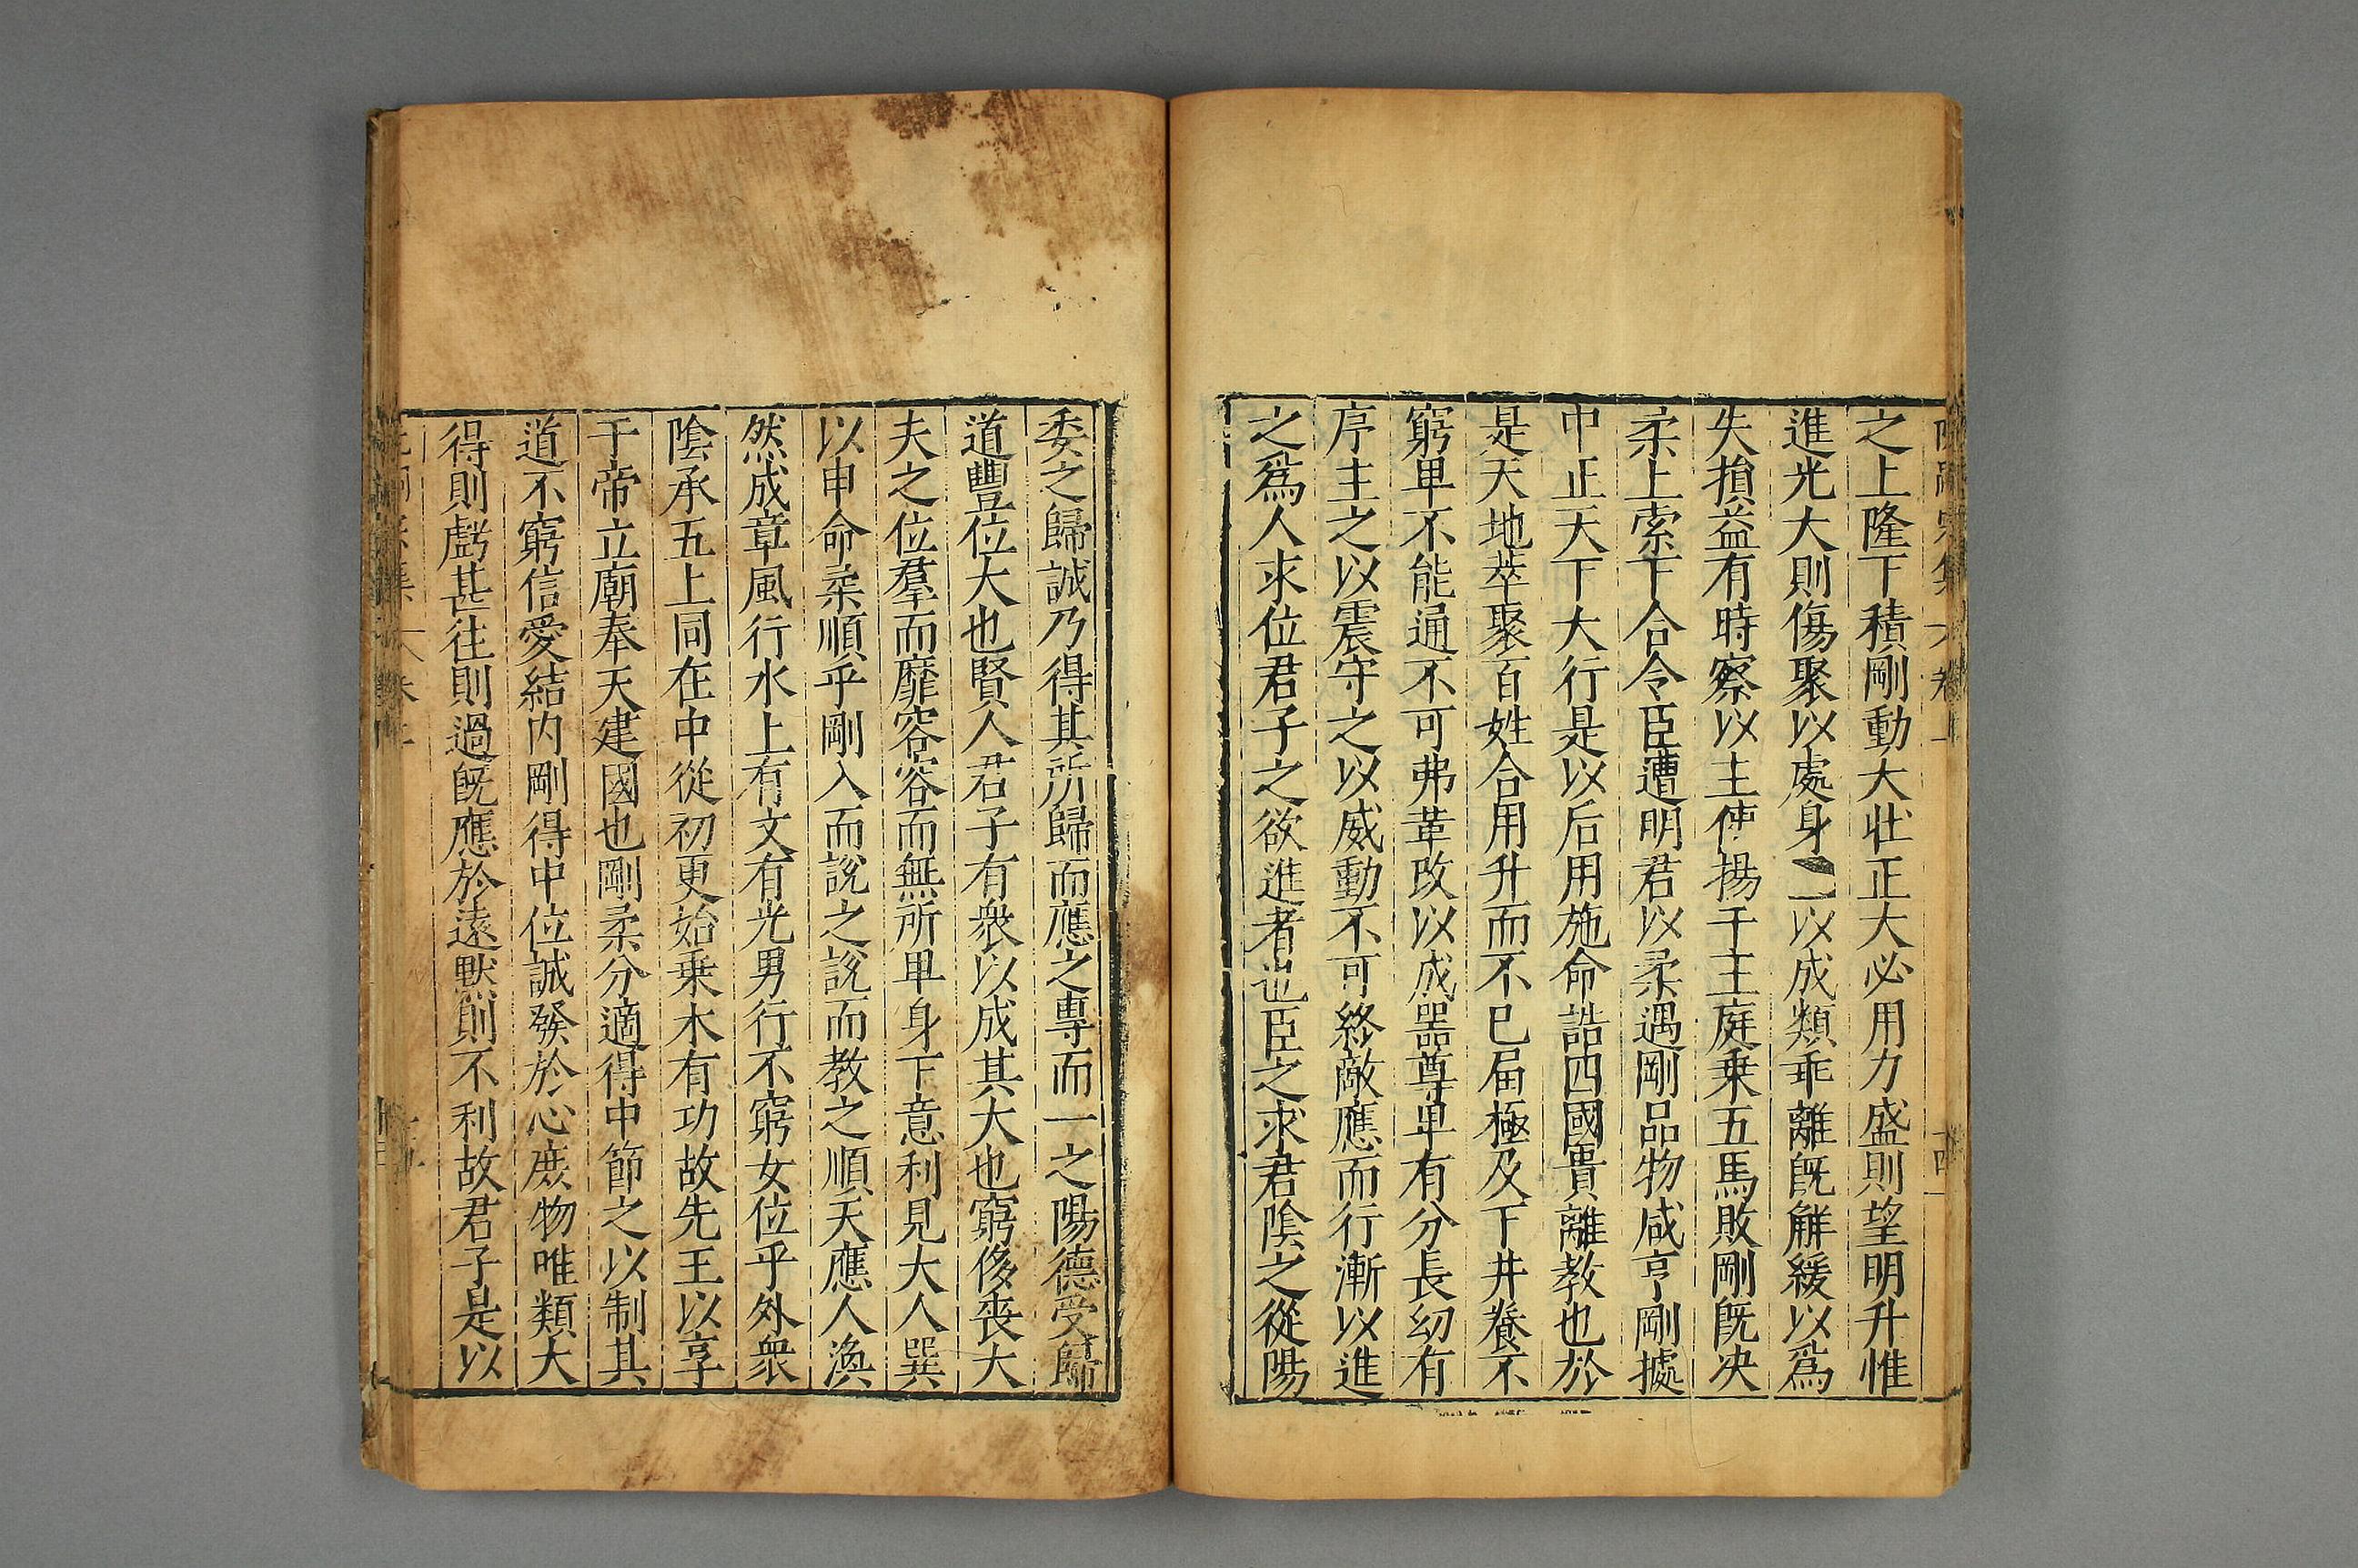 之上隆下積剛動大壮正大必用力盛則望明升惟
進光大則傷聚以處身二以成類乖離既觧緩以爲
失損益有時察以主使揚于王庭乗五馬敗剛既决
柔上索下合令臣遭明君以柔遇剛品物咸亨剛據
中正天下大行是以后用施命誥四國貴離教也於
是天地萃聚百姓合用升而不巳届極及下井養不
窮卑不能通不可弗革改以成噐尊卑有分長㓜有
序主之以震守之以威動不可終敵應而行漸以進
之爲人求位君子之欲進者也臣之求君隂之從陽
委之歸誠乃得其所歸而應之專而一之陽德受歸
道豐位大也賢人君子有衆以成其大也窮侈喪大
夫之位羣而靡容容而無所卑身下意利見大人巽
以申命柔順乎剛入而說之說而教之順天應人渙
然成章風行水上有文有光男行不窮女位乎外衆
隂承五上同在中從初更始乗木有功故先王以享
于帝立廟奉天建國也剛柔分適得中節之以制其
道不窮信愛結内剛得中位誠發於心庻物唯類大
得則虧甚往則過既應於遠默則不利故君子是以